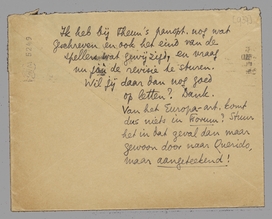 Ik heb bij Theun's panopt. nog wat
geschreven en ook het eind van de
spellen wat gewijzigd, en vraag
nu de revisie te sturen.
Wil jij daar dan nog goed
op letten? Dank.
Van het Europa-art. komt
dus niets in Forum? Stuur
het in dat geval dan maar
gewoon door naar Querido,
maar aangeteekend!